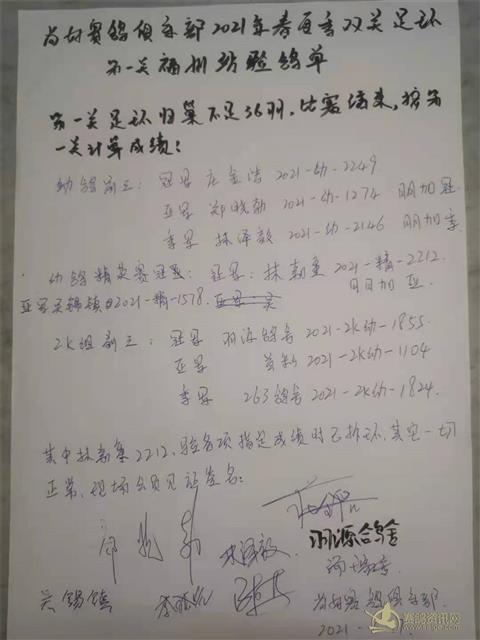 尚好赛鸽俱乐部2021年春百香双关足环
第一关福州站验鸽单
第一关足环归巢不足36羽,比赛结束,按第
一关计算成绩:
幼鸽前三:冠军 庄金浩 2021-幼-2249
亚军 郑晓勤 2021-幼-1274 明加冠
季军 林泽毅 2021-幼-2146 明加季
幼鸽精英赛冠亚:冠军:林新集 2021-精-2212
日月加亚
亚军吴锡镇2021-精-1578.
2K组前三:冠军 羽源鸽舍 2021-2K幼-1855
亚军 2021-2K幼-1104
季军 263鸽舍 2021-2K幼-1824.
其中林新集2212,验各项指定成绩时已拆环,其它一切
正常,现场会员见证签名:
林泽毅
羽源鸽舍
吴锡镇
尚好赛鸽俱乐部
2021-
赛鸽资讯网